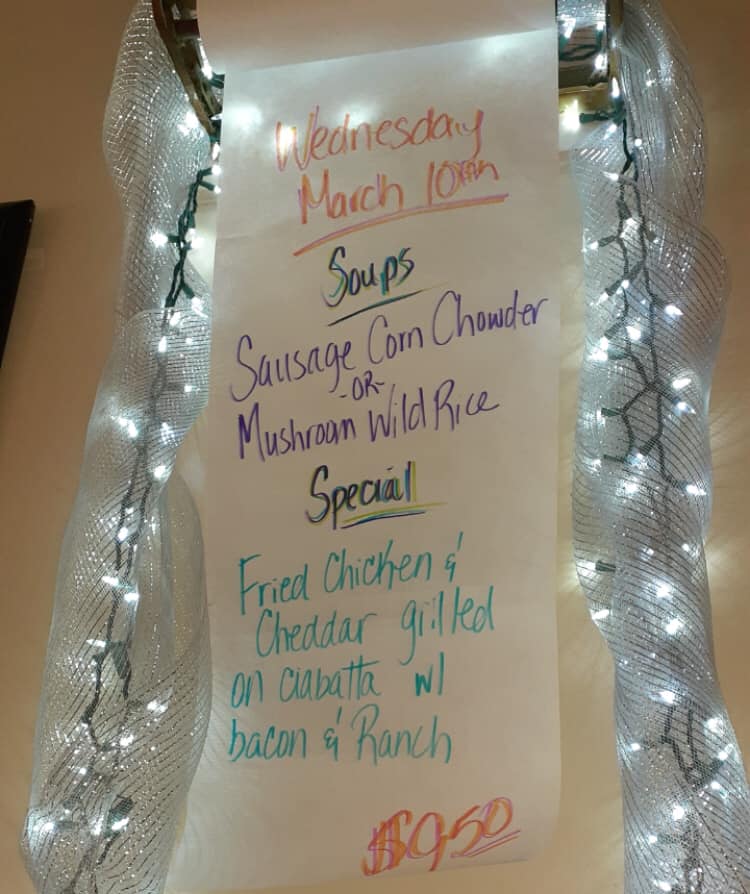 Wednesday
March 10th
Soups
Sausage Corn Chowder
-OR-
Mushroom Wild Rice
Special
Fried Chicken &
Cheddar grilled
on ciabatta w/
bacon & Ranch
$9.50